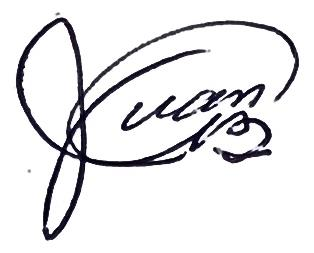 Juan
B